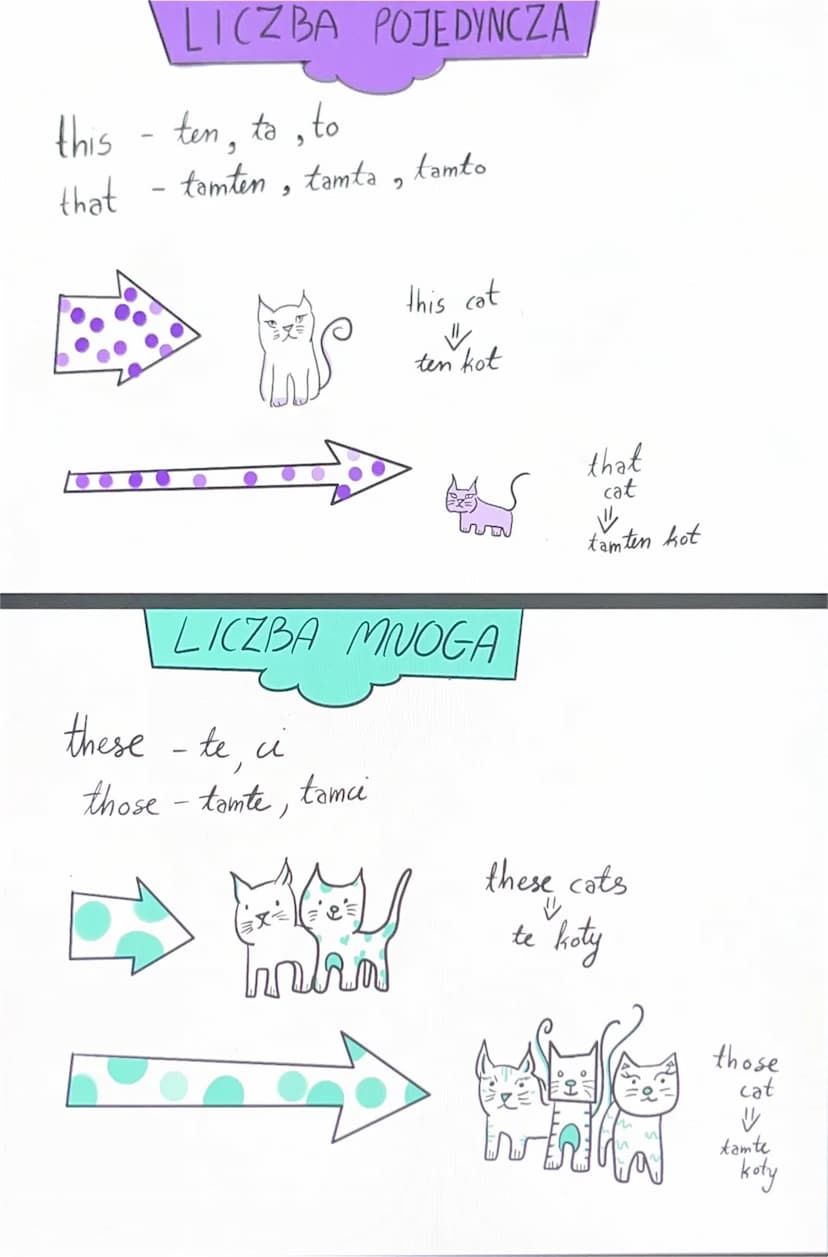 LICZBA POJEDYNCZA
this - ten, ta, to
that - tamten, tamta, tamto
this cat
⇓
ten kot
that
cat
⇓
tamten kot
LICZBA MNOGA
these - te, ci
those - tamte, tamci
these cats
⇓
te koty
those
cat
⇓
tamte
koty